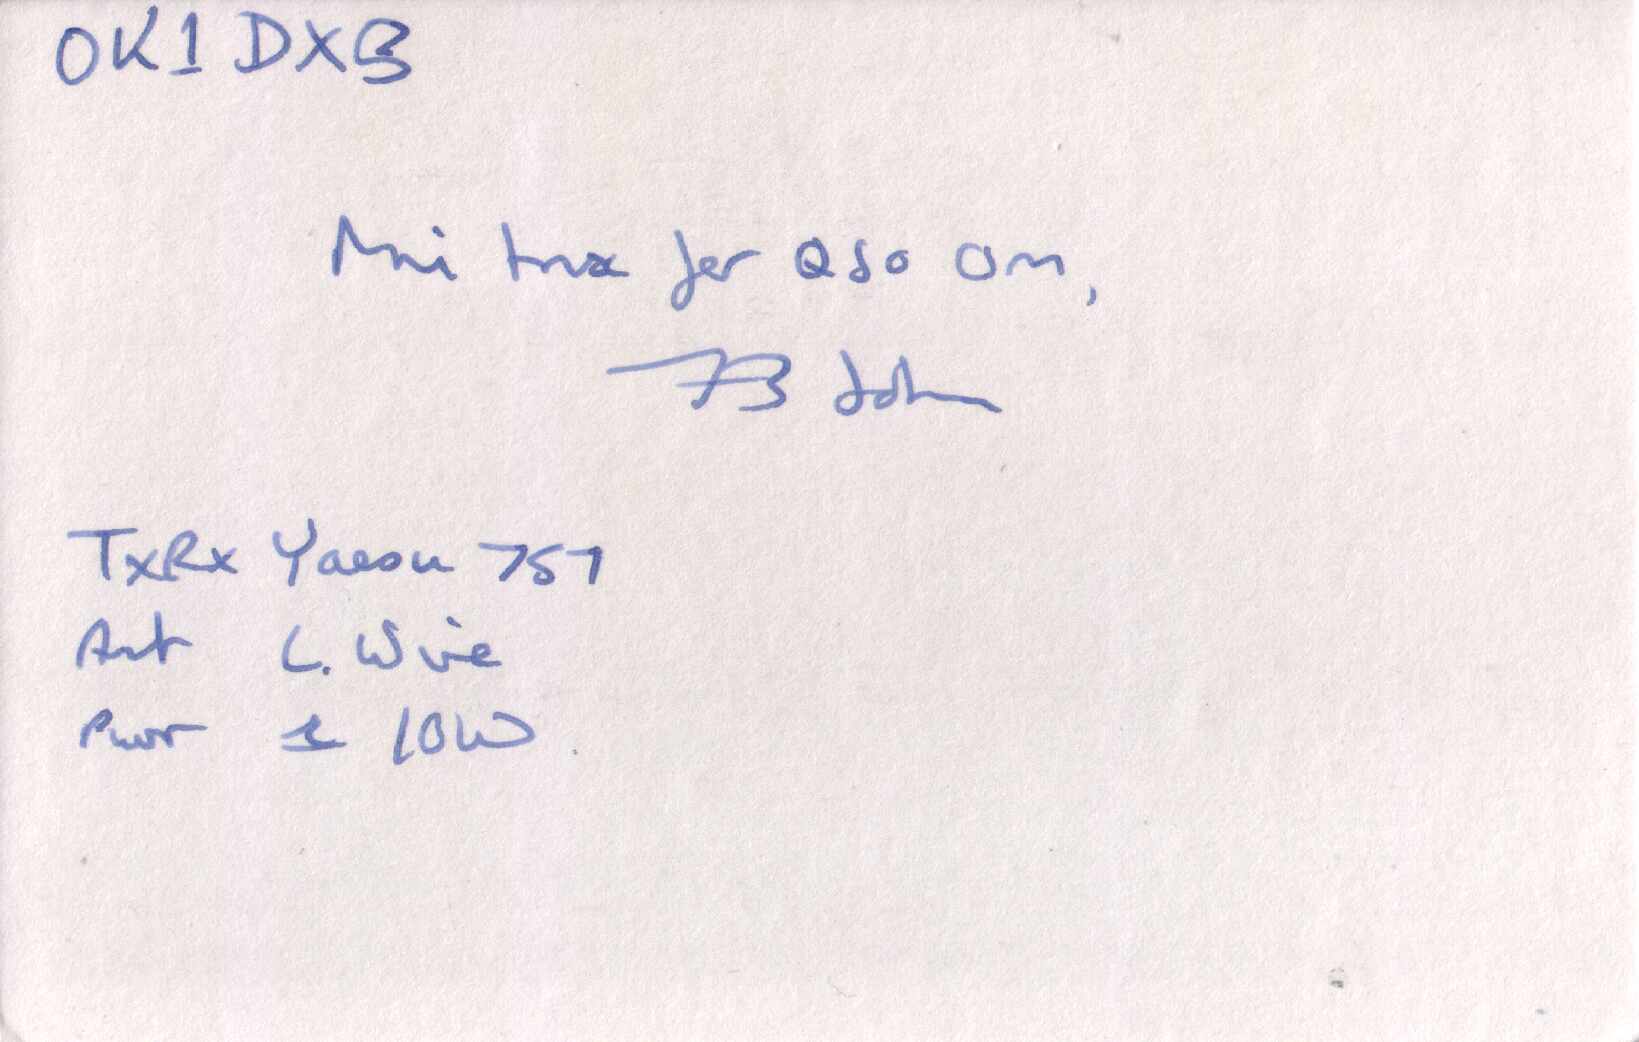 OK1DXB
Mni tnx fer QSO Om,
73 John
TxRx Yaesu 757
Ant L. Wire
Pwr ± 10W